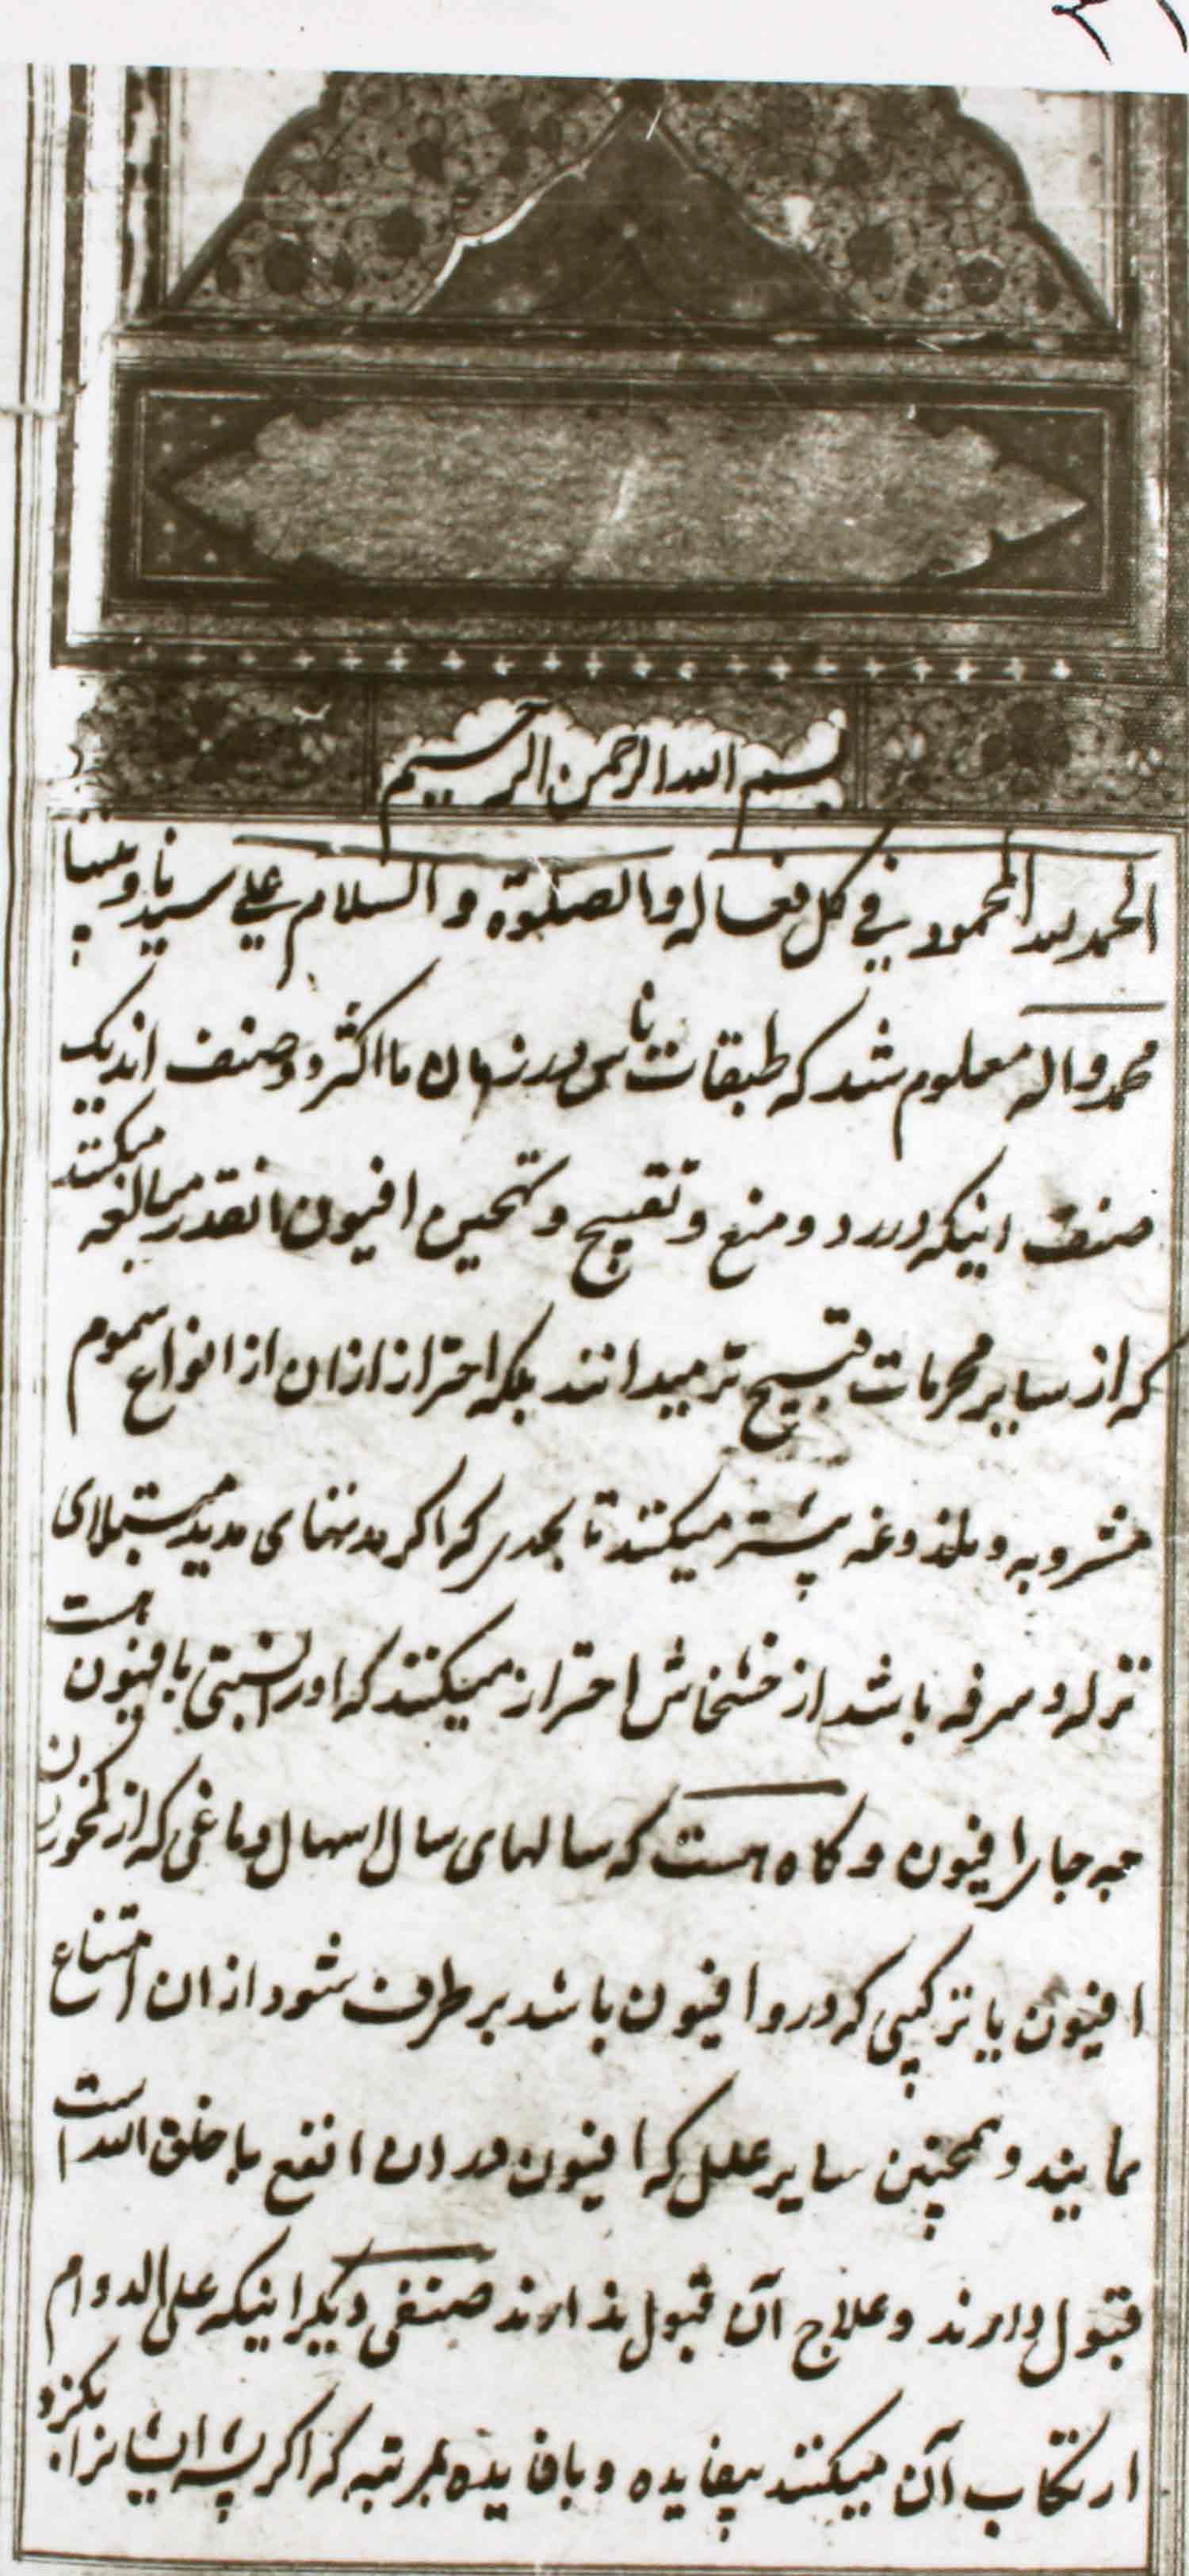 ۲۱
بسم الله الرحمن الرحیم
الحمد لله المحمود فی کل فعاله والصلوة و السلام علی سیدنا و نبینا
محمد و اله معلوم شد که طبقات ناس در زمان ما اکثر دو صنف اند یک
صنف اینکه در رد و منع و تقبیح و تهجین افیون انقدر مبالغه میکنند
که از سایر محرمات قبیح تر میدانند بلکه احتراز ازان از انواع سموم
مشروبه و ملذوغه پیشتر میکنند تا بحدی که اکر مدتهای مدید مبتلای
نزله و سرفه باشد از خشخاش احتراز میکنند که اورا نسبتی بافیون هست
چه جای افیون و کاه هست که سالهای سال اسهال دماغی که از کمخوردن
افیون یا ترکیبی که درو افیون باشد بر طرف شود ازان امتناع
نمایند و همچنین سایر علل که افیون دران انفع ما خلق الله است
قبول دارند و علاج آن قبول ندارند صنفی دیکر اینکه علی الدوام
ارتکاب آن میکنند بیفایده و بافایده بمرتبه که اکر پشه ایشانرا بکزد